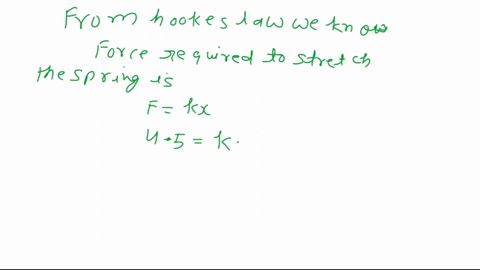 From hookes law we know
Force required to stretch
the spring is
F = kx
4.5 = k.